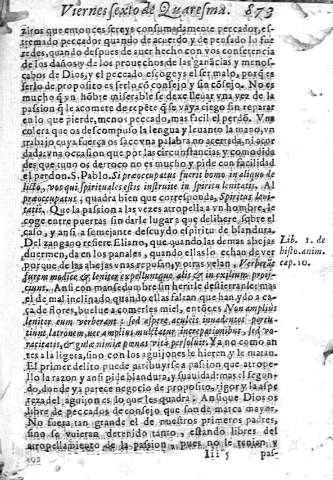 Viernes sexto de Quaresma. 873
ziros que entonces sereys consumadamente peccador, es-
tremado peccador quando de acuerdo y de pesado lo fue
redes, quando despues de auer hecho con vos conferencia
de los daños y de los prouechos, de las ganãcias y menos-
cabos de Dios, y el peccado escogeys el ser malo, porq̃ es
serlo de proposito es serlo cõ consejo y sin cõsejo. No es
mucho q̃ vn hõbre
la passion q̃ le acomete de repẽte q̃ se vaya ciego sin reparar
en lo que pierde, menos peccado, mas facil el perdõ. Vna
colera que os descompuso la lengua y leuanto la mano, vn
trabajo cuya fuerça os saco vna palabra no acertada, ni acor
dada; vna occasion que por las circunstancias y comodida
des que tuuo os derroco no es mucho, y pide con facilidad
el perdon. S. Pablo. Si præoccupatus fuerit homo in aliquo de
licto, vos qui spirituales estis instruite in spiritu lenitatis. Al
præoccupatus, quadra bien que corresponda, Spiritus leni-
tatis. Que la passion a las vezes atropella a vn hombre, le
coge entre puertas sin darle lugar a que delibere, sobre el
caso, y ansi, a semejante descuydo spiritu de blandura.
Del zangano refiere Eliano, que quando las demas abejas
duermen, da en los panales, quando ellas lo echan de ver
porque de las abejas vnas reposan, y otras velan. Verberat
furem modice & leniter expelluntque alis & in exilium proij-
ciunt. Ansi con mansedumbre sin herirle destierranle: mas
el de mal inclinado quando ellas faltan que han ydo a ca-
ça de flores, buelue a comerles miel, entonces Non amplius
leniter eum verberant sed aspere aculeis inuadentes perun-
tiunt, latronem, nec amplius mulctatur increpationibus, sed vo-
racitatis, & gulæ nimiæ pœnas vita persoluit. Ya no como an
tes a la ligera, sino con los aguijones le hieren y le matan.
El primer delito puede atribuyrse a passion que atrope-
llo la razon y ansi pide blandura, y suauidad: mas el segun-
do, donde ya parece negocio de proposito, rigor y la aspe
reza del aguijon es lo que les quadra. Ansi que Dios os
libre de peccados de consejo que son de marca mayor.
No fuera tan grande el de nuestros primeros padres,
sino se vuieran detenido tanto, estando libres del
atropellamiento de la passion, pues no le tenian, y
Iii 5 pas-
Lib. 1. de
histo. anim.
cap. 10.